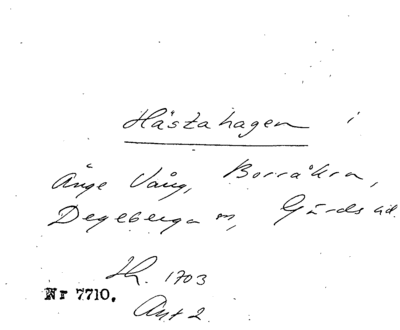 Hästahagen i
Änge Vång, Borråkra,
Degeberga sn, Gärds hd.
Lh. 1703
Nr 7710.
Akt 2.